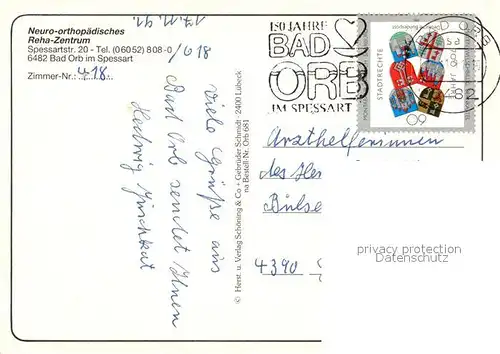 Neuro-orthopädisches
Reha-Zentrum
Spessartstr. 20 - Tel. (06052) 808-0/618
6482 Bad Orb im Spessart
Zimmer-Nr.: 418
17.12.92
Viele Grüße aus
Bad Orb sendet Ihnen
Hedwig
© Herst. u. Verlag Schöning & Co + Gebrüder Schmidt · 2400 Lübeck
Bestell-Nr. Orb 681
150 JAHRE
BAD
ORB
IM SPESSART
BAD ORB
STADTRECHTE
60
Arzthelferinnen
des
4390
privacy protection
Datenschutz